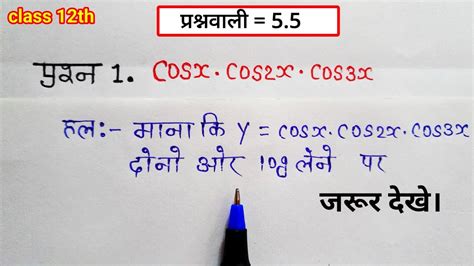 class 12th
प्रश्नवाली = 5.5
प्रश्न 1. cosx · cos2x · cos3x
हल:- माना कि y = cosx · cos2x · cos3x
दोनो ओर log लेने पर
जरूर देखे।